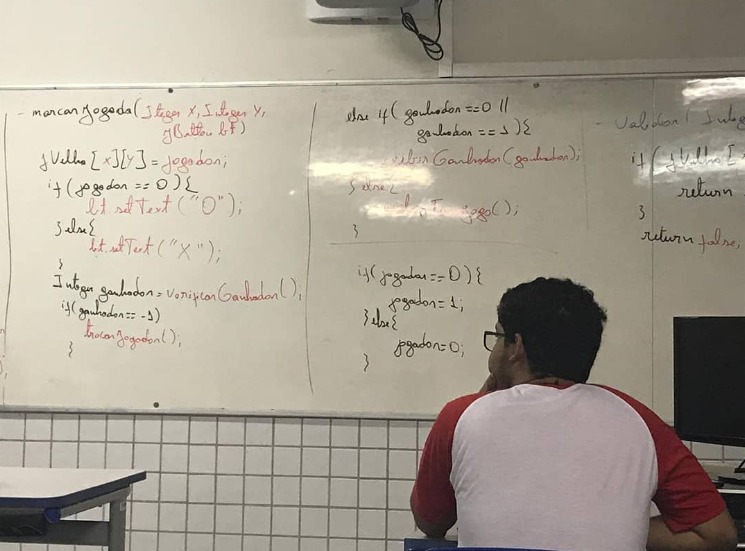 - marcarJogada(Iteger X, Integer Y,
jButton bt)
jVelha[x][y] = jogador;
if (jogador == 0){
bt.setText("O");
}else{
bt.setText("X");
}
Integer ganhador = verificarGanhador();
if(ganhador == -1)
trocarJogador();
}
else if(ganhador ==0 ||
ganhador == 1){
Ganhador(ganhador);
}else{
jogo();
}
if(jogador == 0){
jogador = 1;
}else{
jogador = 0;
}
- Validar(
if (jVelha[
return
}
return false;